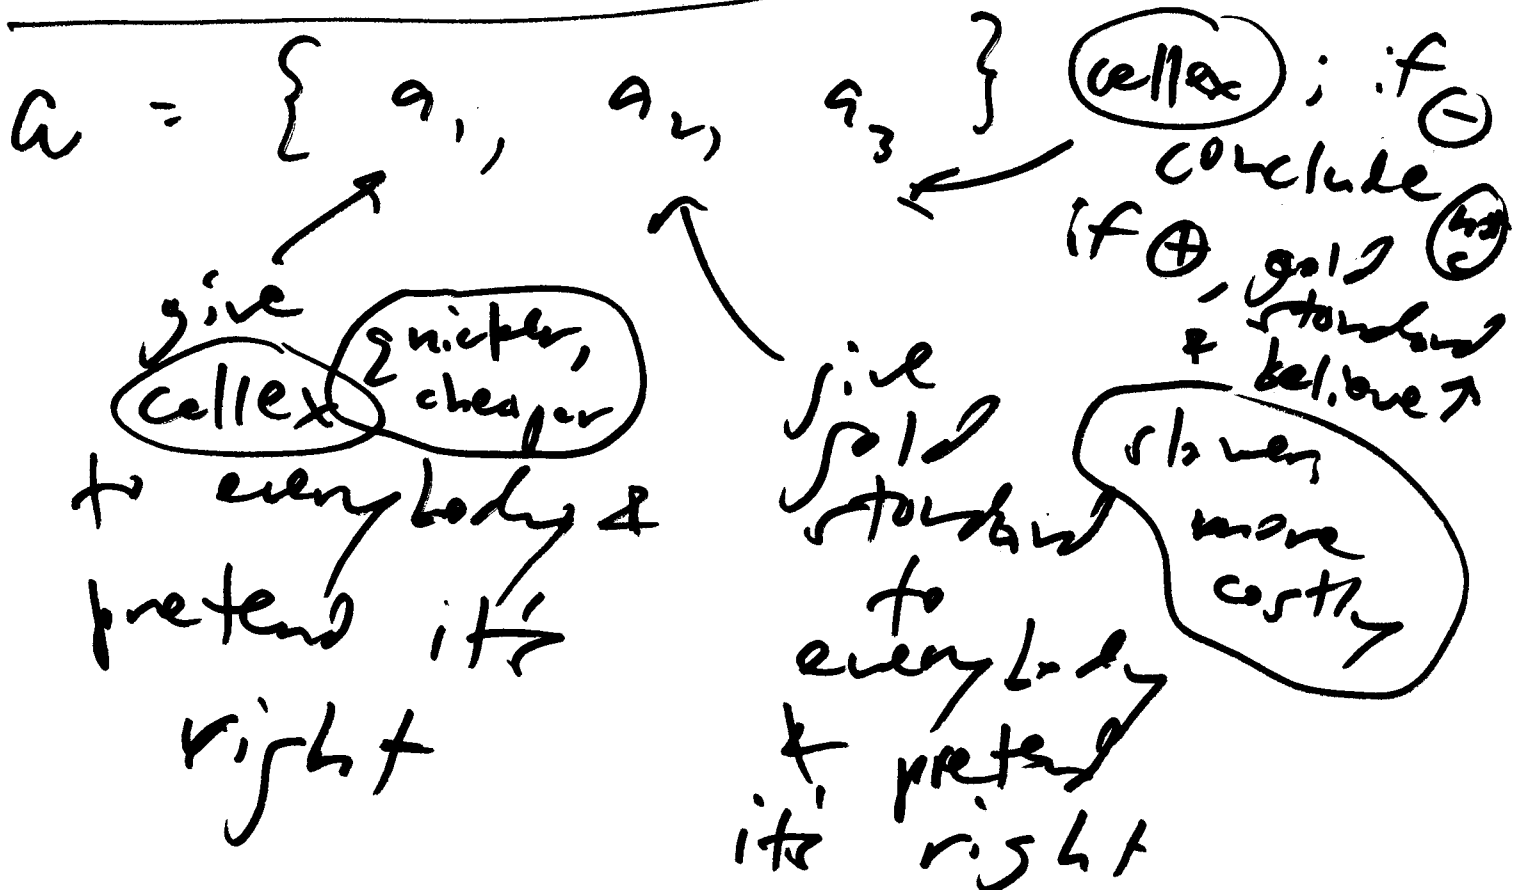 a = { a₁, a₂, a₃ }
cellex ; if ⊖
conclude
if ⊕, gold
standard
& believe ↗
give
cellex
quicker,
cheaper
to everybody &
pretend it's
right
give
gold
standard
to
everybody
& pretend
it's right
slower,
more
costly